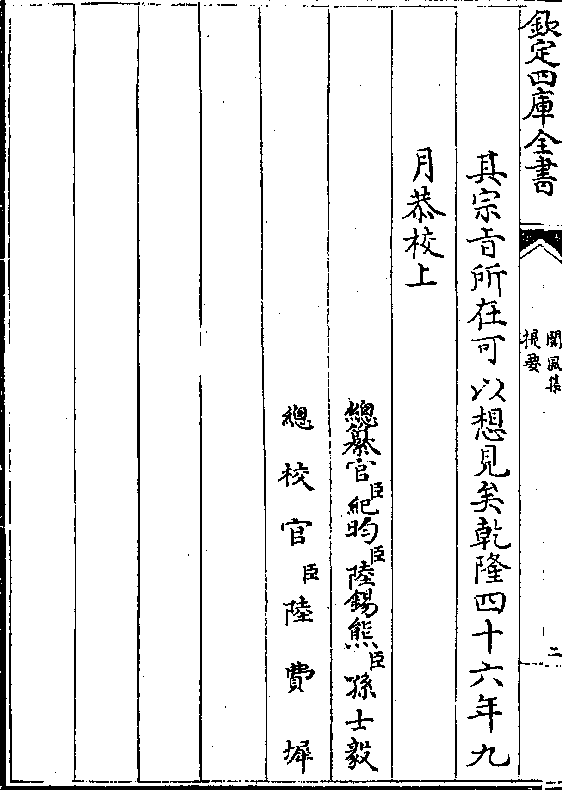 欽定四庫全書
閬風集
提要
二
其宗旨所在可以想見矣乾隆四十六年九
月恭校上
總纂官臣紀昀臣陸錫熊臣孫士毅
總校官臣陸費墀